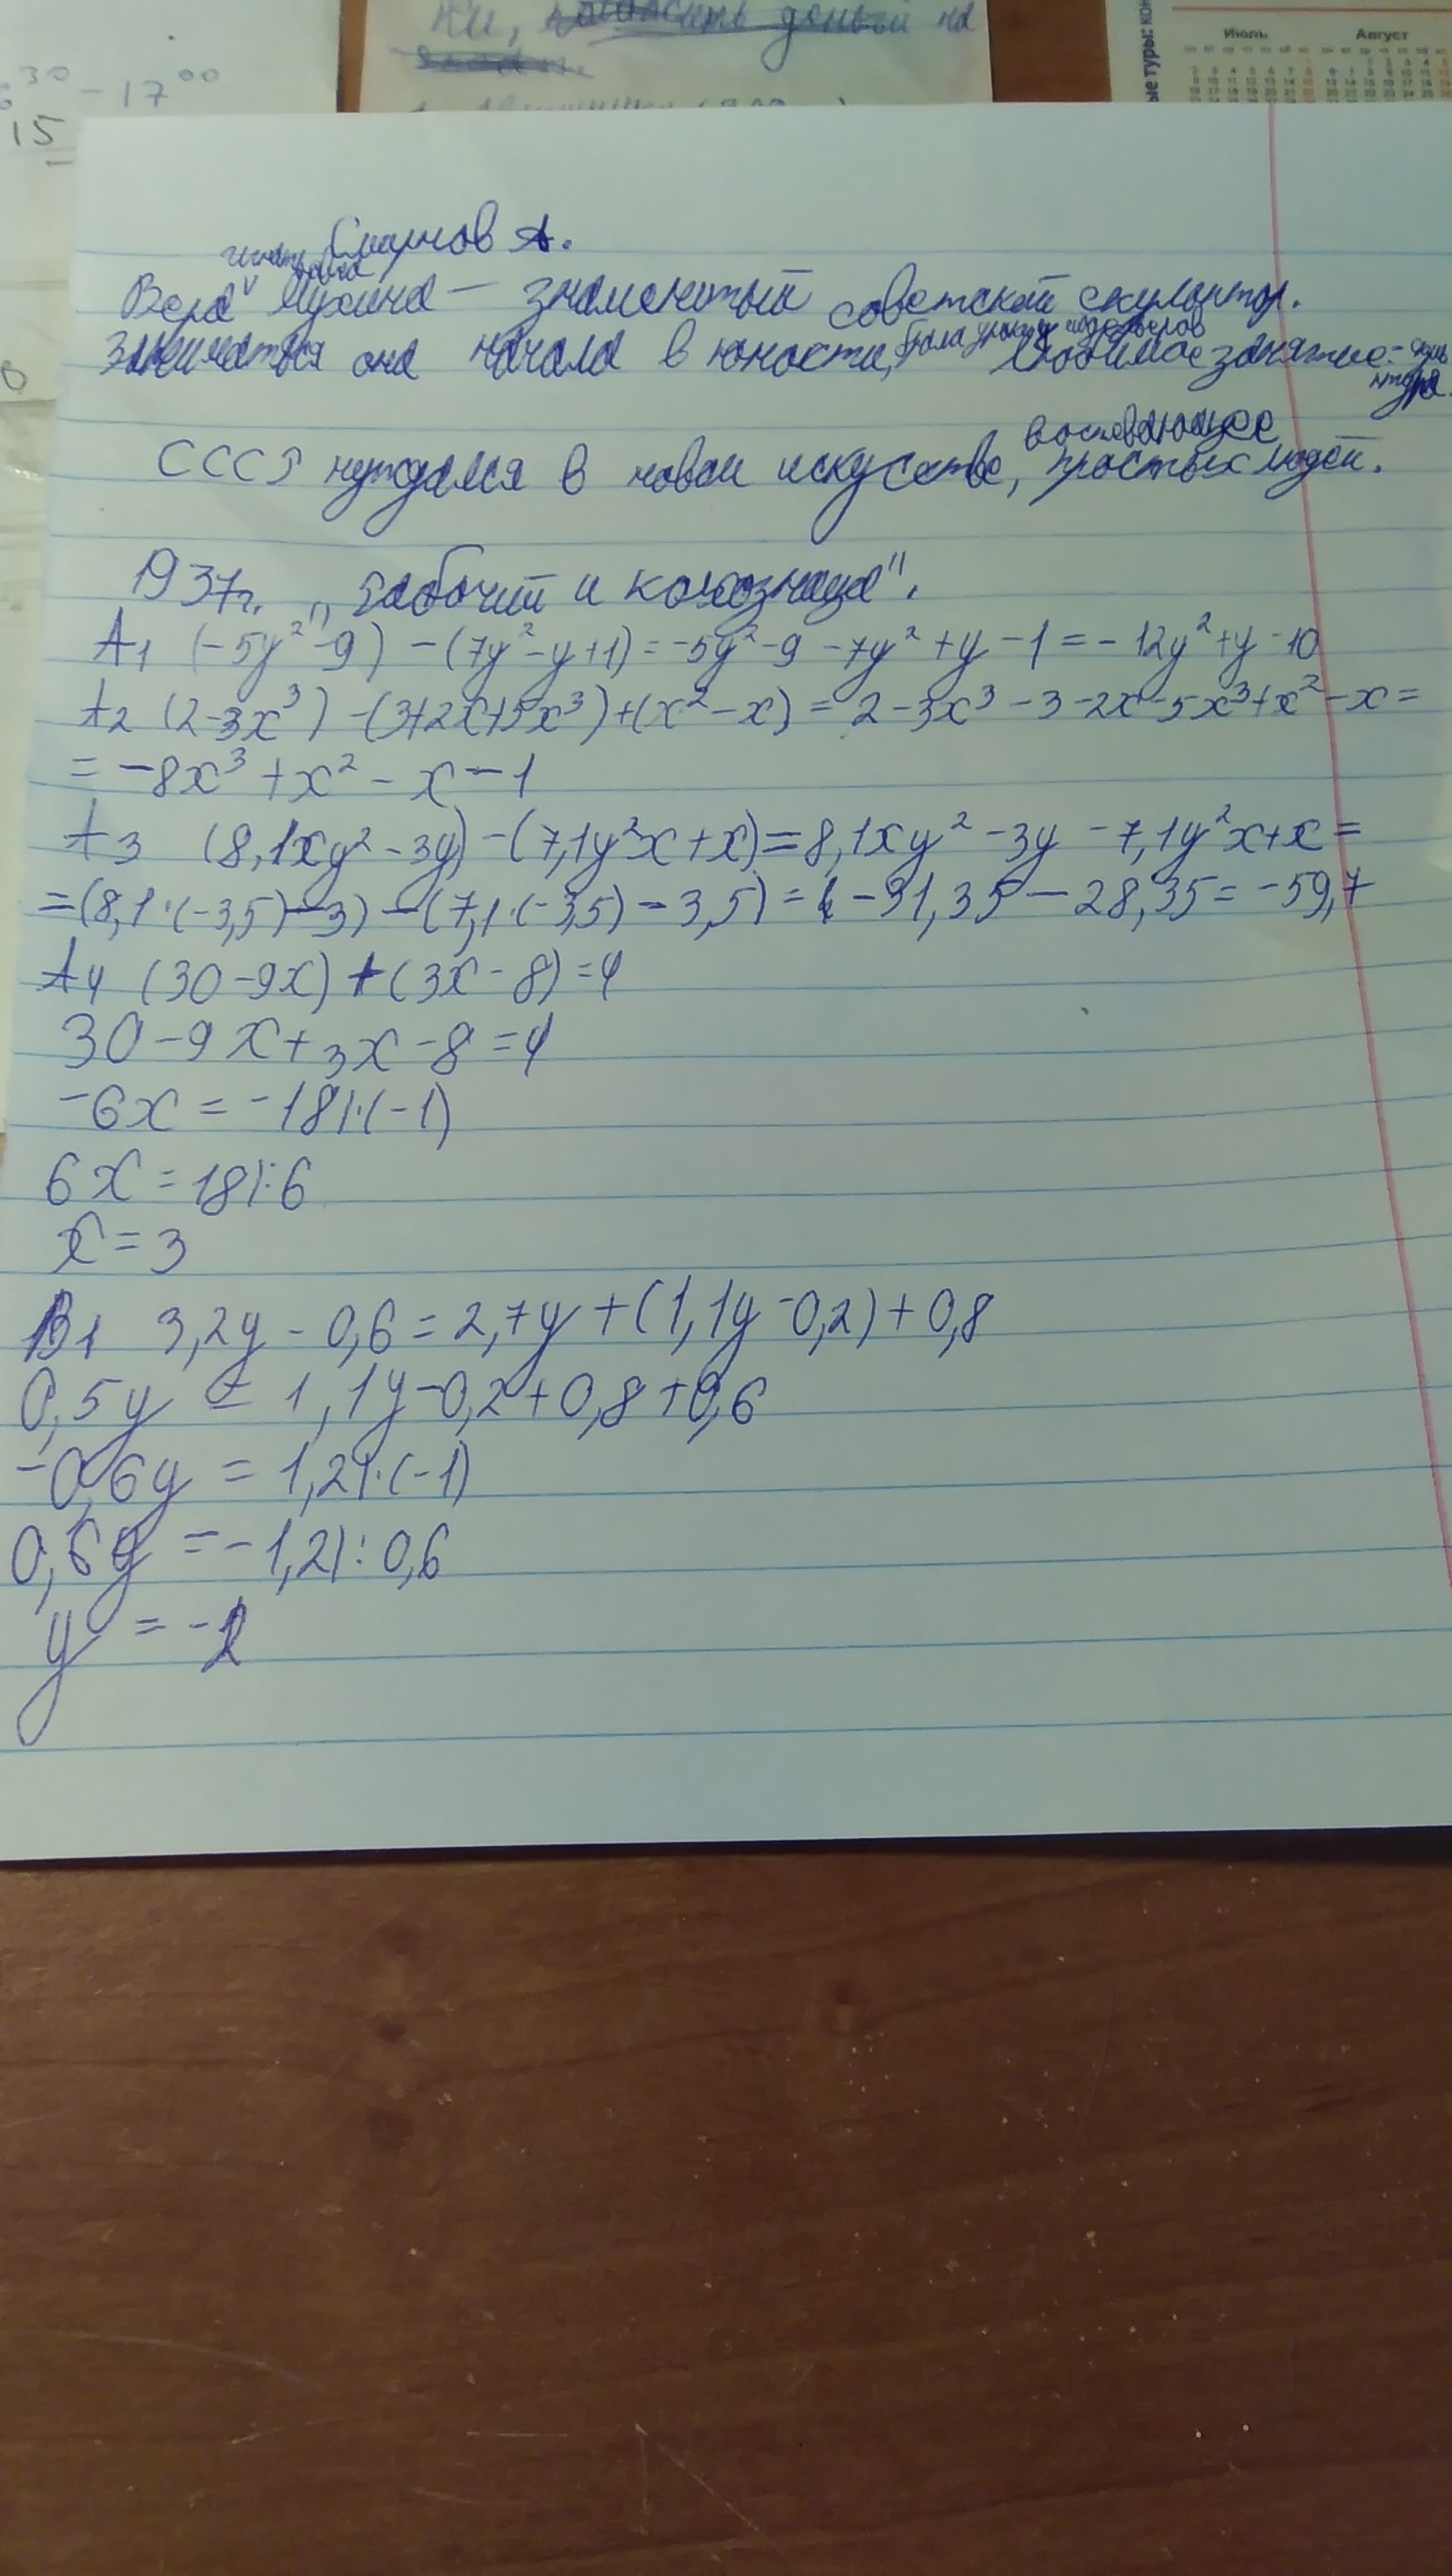 30 - 17 00
15
ки, деньги на
ые туры:
Июль
Август
Смирнов А.
Вера Мухина — знаменитый советский скульптор.
Заниматься она начала в юности, была любимое занятие - скуль
птура.
воспевающее
СССР нуждался в новом искусстве, простых людей.
1937г. "Рабочий и колхозница".
А1 (-5y²-9) -(7y²-y+1)=-5y²-9-7y²+y-1=-12y²+y-10
А2 (2-3x³) -(3+2x+5x³)+(x²-x) = 2-3x³-3-2x-5x³+x²-x=
= -8x³+x²-x-1
А3 (8,1xy²-3y)-(7,1y²x+x)=8,1xy²-3y-7,1y²x+x=
=(8,1·(-3,5)-3)-(7,1·(-3,5)-3,5)= -31,35-28,35=-59,7
А4 (30-9x)+(3x-8)=4
30-9x+3x-8=4
-6x=-18|·(-1)
6x=18|:6
x=3
В1 3,2y-0,6=2,7y+(1,1y-0,2)+0,8
0,5y = 1,1y-0,2+0,8+0,6
-0,6y = 1,2|·(-1)
0,6y =-1,2|:0,6
y = -2